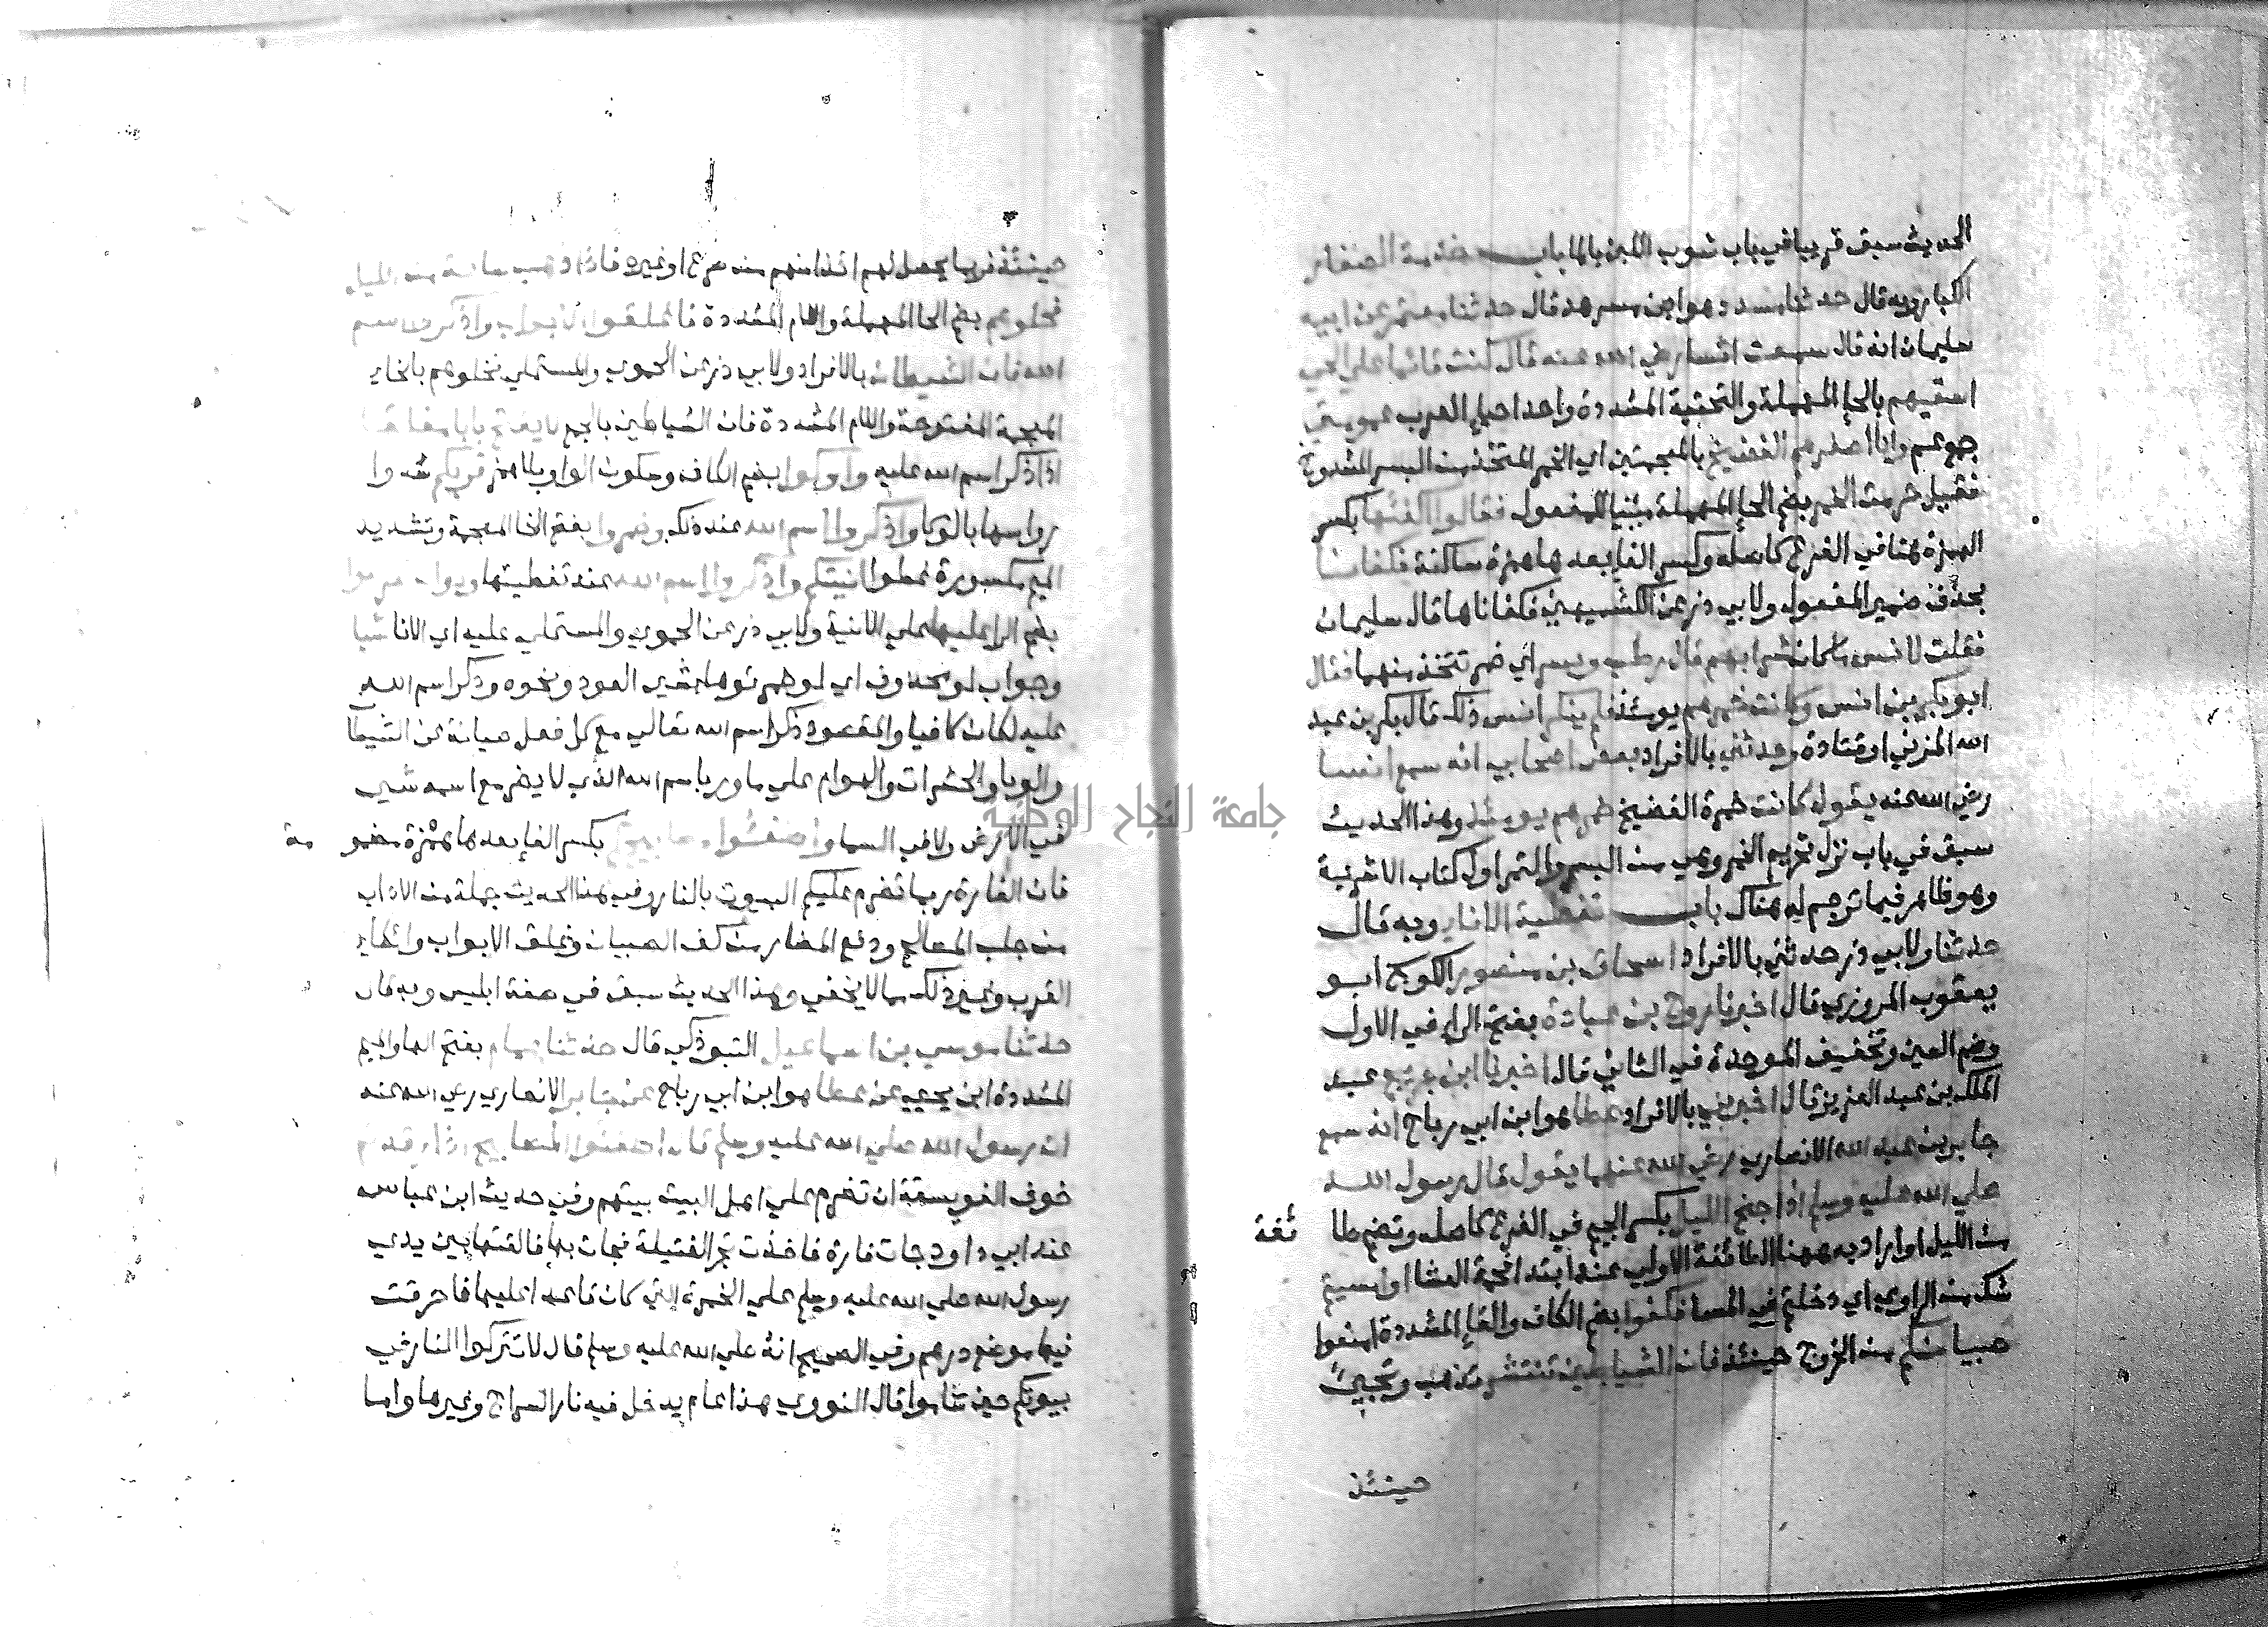 الحديث سبق قريبا في باب شوب اللبن بالما باب خدمة الصغار
الكبار وبه قال حدثنا مسدد هو ابن مسرهد قال حدثنا معتمر عن ابيه
سليمان انه قال سمعت انسا رضي الله عنه قال كنت قائما علي الحي
اسقيهم بالحا المهملة والتحتية المشددة واحد احيا العرب عمومتي
جمع عم وانا اصغرهم الفضيخ بالمعجمتين اي الخمر المتخذ من البسر المشدوخ
فقيل حرمت الخمر بضم الحا المهملة مبنيا للمفعول فقالوا اكفئها بكسر
الهمزة هنا في الفرع كاصله وكسر الفا بعدها همزة ساكنة فكفانا
بحذف ضمير المفعول ولابي ذر عن الكشميهني فكفاناها قال سليمان
فقلت لانس ما كان شرابهم قال رطب وبسر اي خمر تتخذ منهما فقال
ابو بكر بن انس وكانت خمرهم يومئذ فلم ينكر انس ذلك قال بكر بن عبد
الله المزني او قتادة وحدثني بالافراد بعض اصحابي انه سمع انسا
رضي الله عنه يقول كانت خمرة الفضيخ خمرهم يومئذ وهذا الحديث
سبق في باب نزل تحريم الخمر وهي من البسر والتمر اول كتاب الاشربة
وهو ظاهر فيما ترجم له هناك باب تغطية الانا وبه قال
حدثنا ولابي ذر حدثني بالافراد اسحاق بن منصور الكوسج ابو
يعقوب المروزي قال اخبرنا روح بن عبادة بفتح الرا في الاول
وضم العين وتخفيف الموحدة في الثاني قال اخبرنا ابن جريج عبد
الملك بن عبد العزيز قال اخبرني بالافراد عطا هو ابن ابي رباح انه سمع
جابر بن عبد الله الانصاري رضي الله عنهما يقول قال رسول الله
صلي الله عليه وسلم اذا جنح الليل بكسر الجيم في الفرع كاصله وتضم طا ئفة
من الليل او اراد به ههنا الطائفة الاولي عند ابتدا فحمة العشا او امسيتم
شك من الراوي اي دخلتم في المسا فكفوا بضم الكاف والفا المشددة امنعوا
صبيانكم من الخروج حينئذ فان الشياطين تنتشر تذهب وتجيئ
حينئذ
حينئذ فربما يحصل لهم ايذا منهم من صرع او غيره فاذا ذهب ساعة من الليل
فحلوهم بضم الحا المهملة واللام المشددة فاغلقوا الابواب واذكروا اسم
الله فان الشيطان بالافراد ولابي ذر عن الحموي والمستملي فخلوهم بالخا
المعجمة المفتوحة واللام المشددة فان الشياطين بالجمع لا يفتح بابا مغلقا
اذا ذكر اسم الله عليه واوكوا بضم الكاف وسكون الواو بلا همز قربكم شدوا
رواسها بالوكا واذكروا اسم الله عند ذلك وخمروا بفتح الخا المعجمة وتشديد
الميم مكسورة غطوا انيتكم واذكروا اسم الله عند تغطيتها ولو ان تعرضوا
بضم الرا عليها علي الانية ولابي ذر عن الحموي والمستملي عليه اي الانا شيا
وجواب لو محذوف اي لو خمرتوها بشي العود ونحوه وذكر اسم الله
عليه لكان كافيا والمقصود ذكر اسم الله تعالي مع كل فعل صيانة عن الشيطا
والوبا والحشرات والهوام علي ما ورد باسم الله الذي لا يضر مع اسمه شي
في الارض ولا في السما واطفئوا مصابيحكم بكسر الفا بعدها همزة مضمو مة
فان الفارة ربما تضرم عليكم البيوت بالنار وفي هذا الحديث جملة من الاداب
من جلب المصالح ودفع المضار من كف الصبيان وغلق الابواب وايكاء
القرب وغير ذلك مما لا يخفي وهذا الحديث سبق في صفة ابليس وبه قال
حدثنا موسي بن اسماعيل التبوذكي قال حدثنا همام بفتح الها والميم
المشددة ابن يحيي عن عطا هو ابن ابي رباح عن جابر الانصاري رضي الله عنه
ان رسول الله صلي الله عليه وسلم قال اطفئوا المصابيح اذا رقدتم
خوف الفويسقة ان تضرم علي اهل البيت بيتهم وفي حديث ابن عباس
عند ابي داود جات فارة فاخذت تجر الفتيلة فجات بها فالقتها بين يدي
رسول الله صلي الله عليه وسلم علي الخمرة التي كان قاعدا عليها فاحرقت
فيها موضع درهم وفي الصحيح انه صلي الله عليه وسلم قال لا تتركوا النار في
بيوتكم حين تناموا قال النووي هذا عام يدخل فيه نار السراج وغيرها واما
جامعة النجاح الوطنية